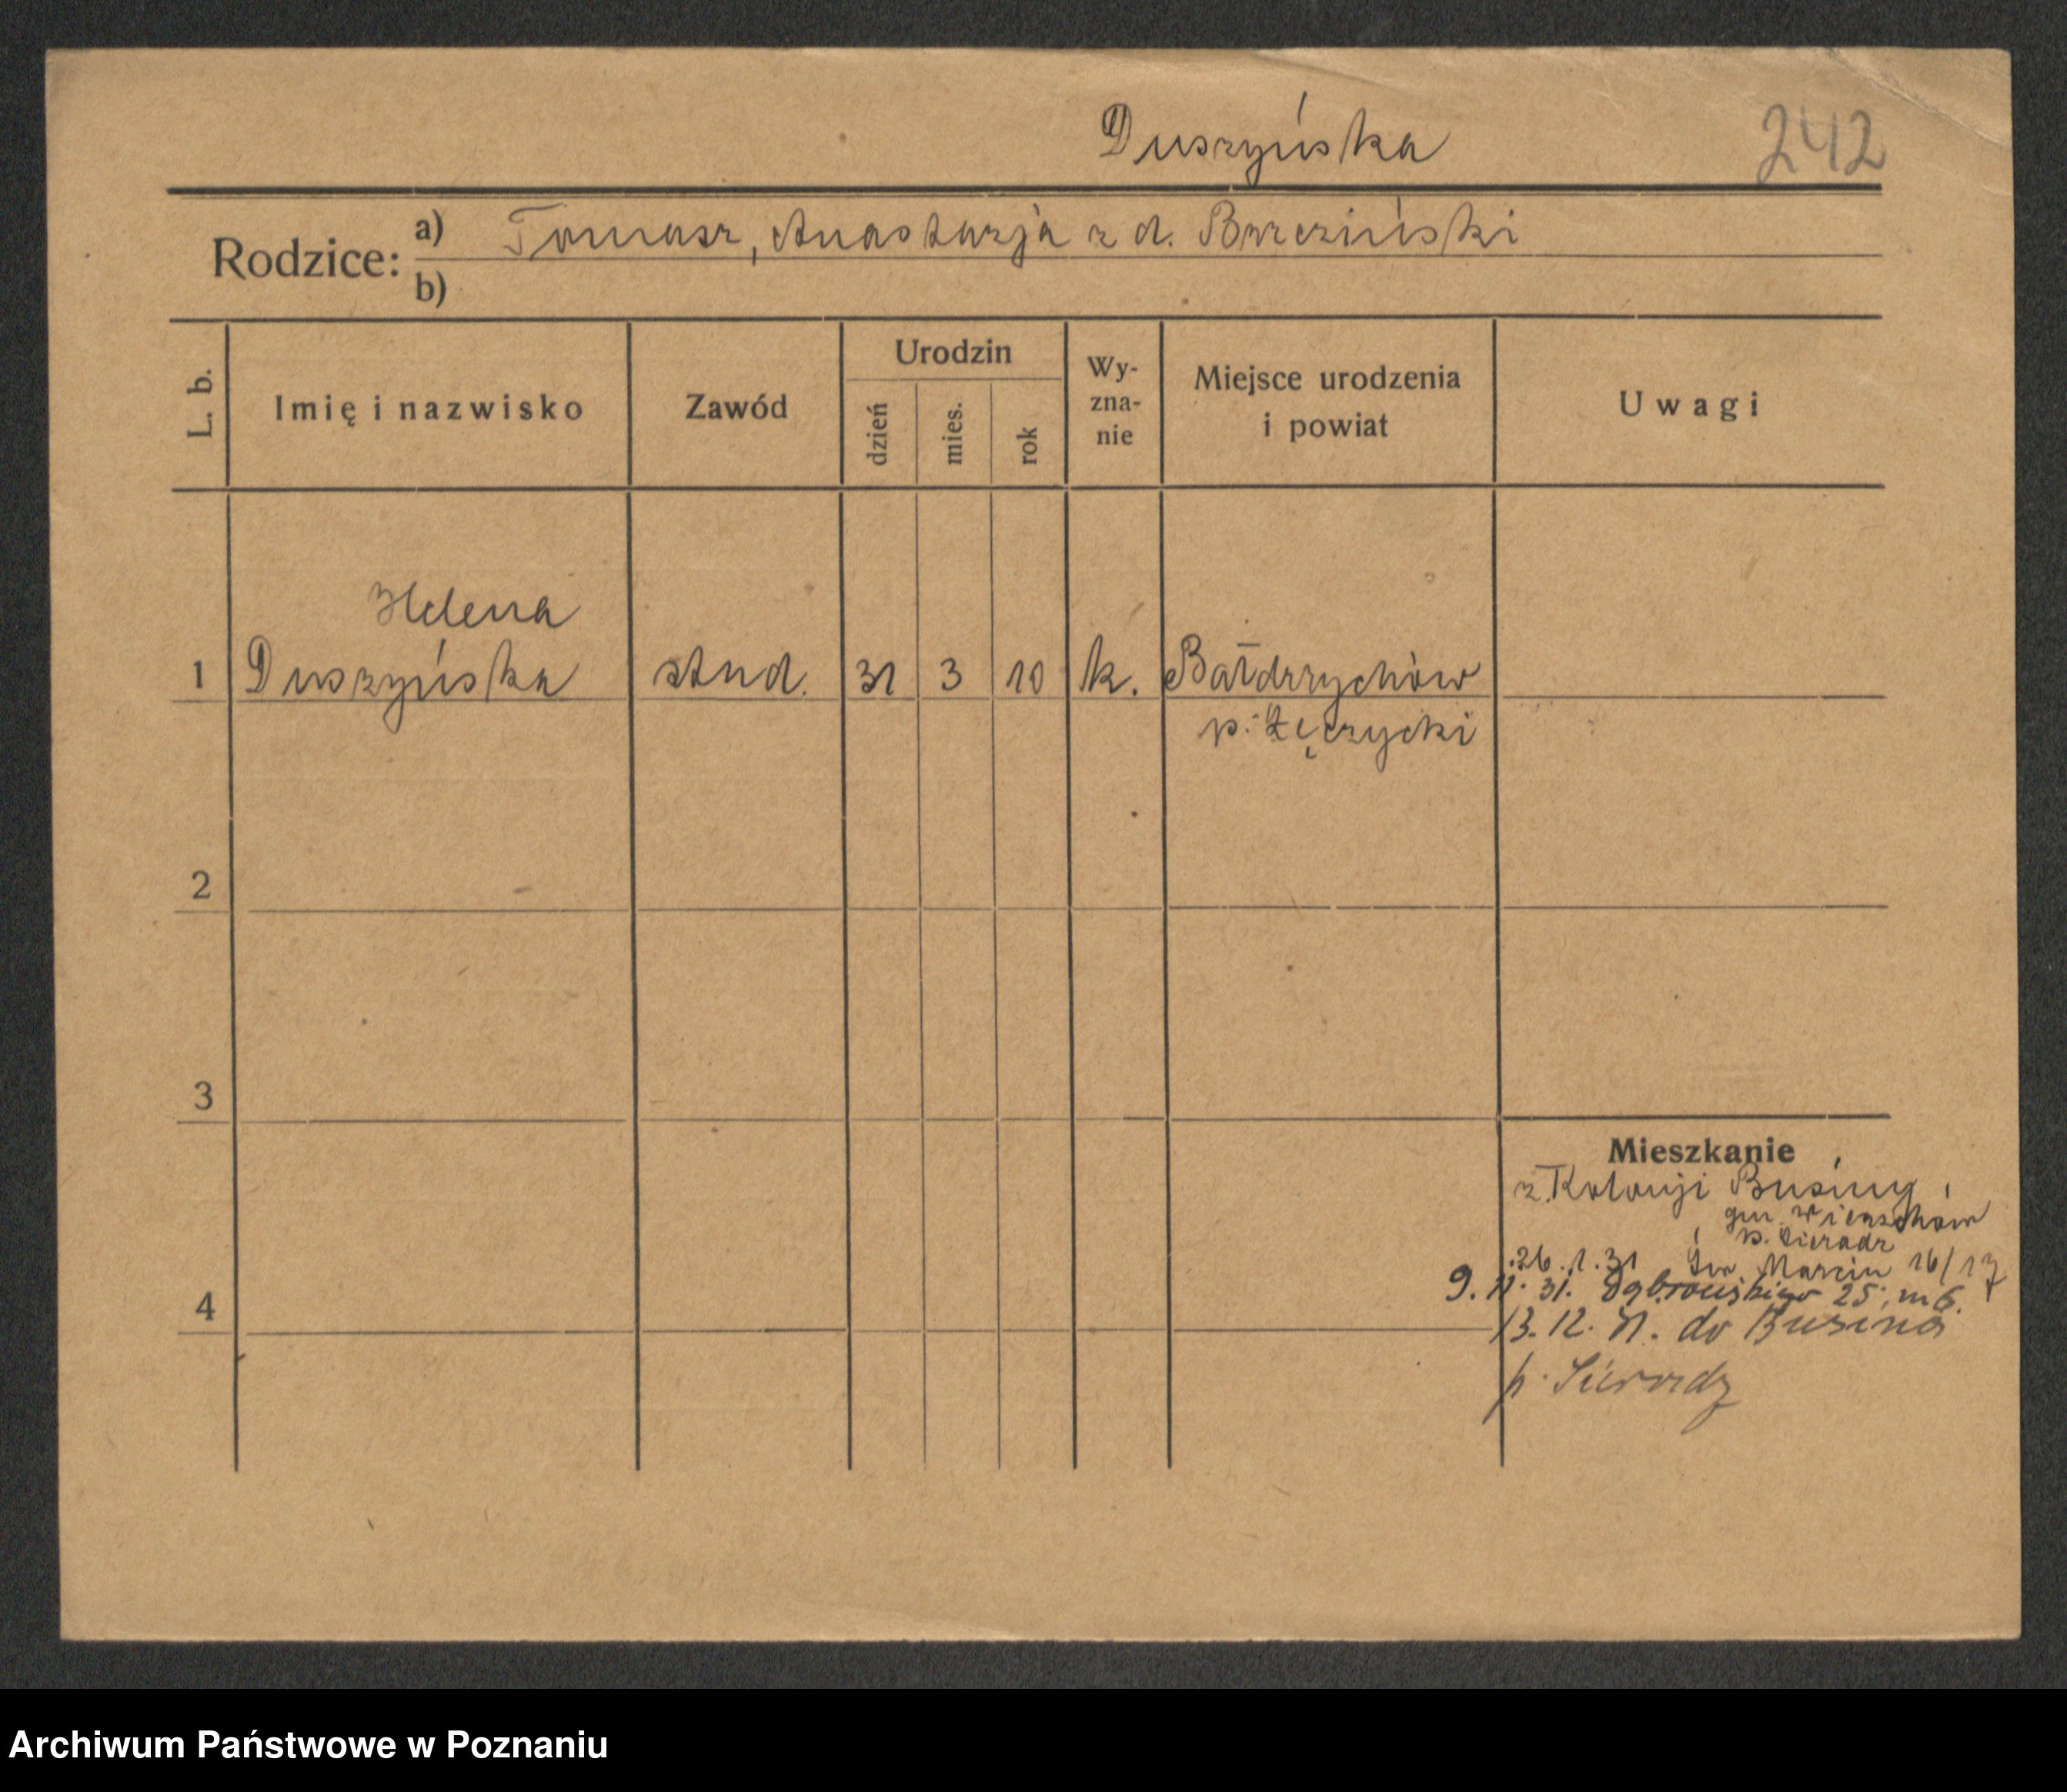 Duszyńska 242
Rodzice: a) Tomasz, Anastazja z d. Brzeziński
b)
L. b. Imię i nazwisko Zawód Urodzin dzień mies. rok Wy-zna-nie Miejsce urodzenia i powiat Uwagi
Helena
1 Duszyńska stud. 31 3 10 k. Bałdrzychów
p. Łęczycki
2
3
Mieszkanie
z Kolonji Businy
gm. Wierzchów
p. Sieradz
26.1.31 Św Marcin 16/17
9. 11. 31. Dąbrowskiego 25, m 6.
4
13. 12. 31. do Busina
p. Sieradz
Archiwum Państwowe w Poznaniu